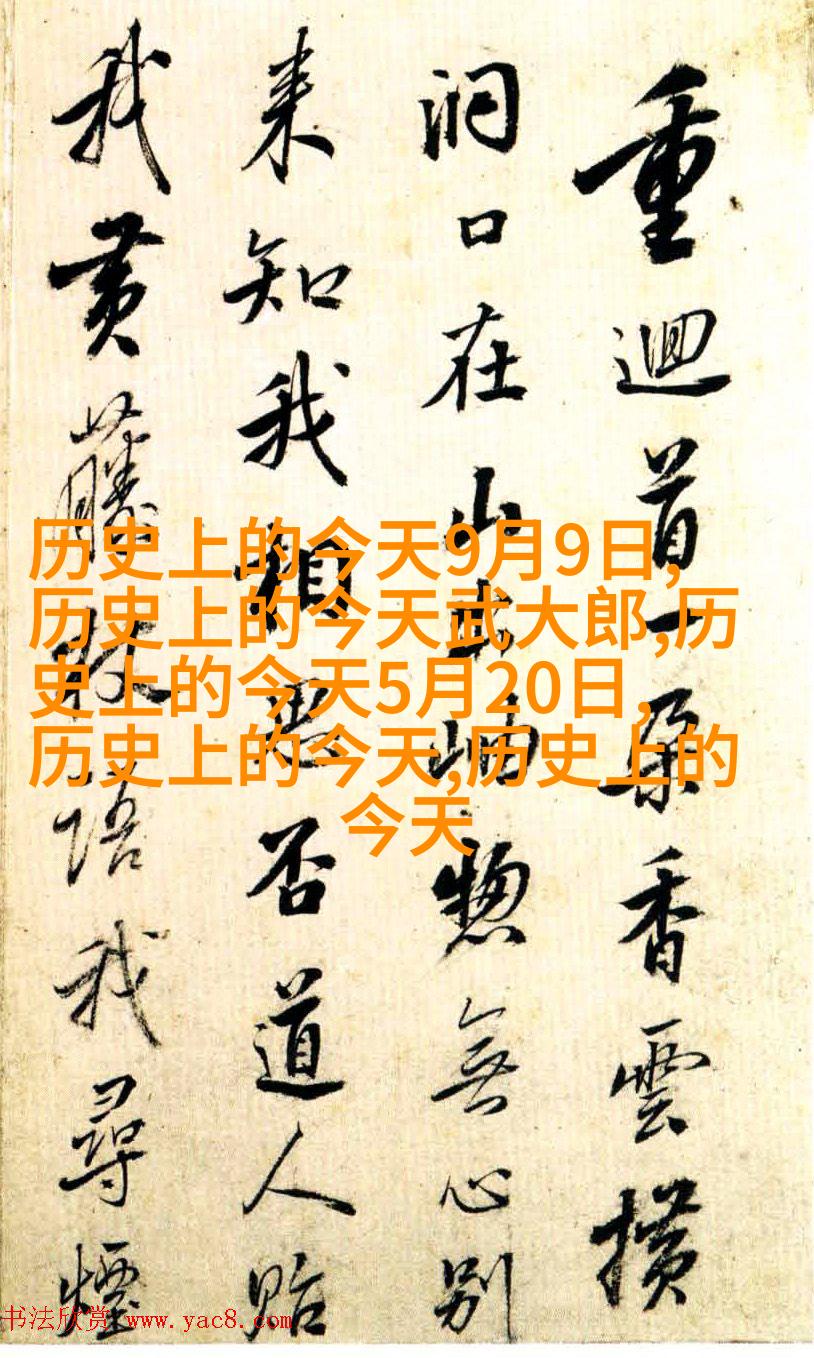 重迴首一朵香雲横
洞口在山出岫惣無心別
来知我相思否道人貽
我黄藤杖語我尋煙
历史上的今天9月9日,
历史上的今天武大郎,历
史上的今天5月20日,
历史上的今天,历史上的
今天
书法欣赏 www.yac8.com